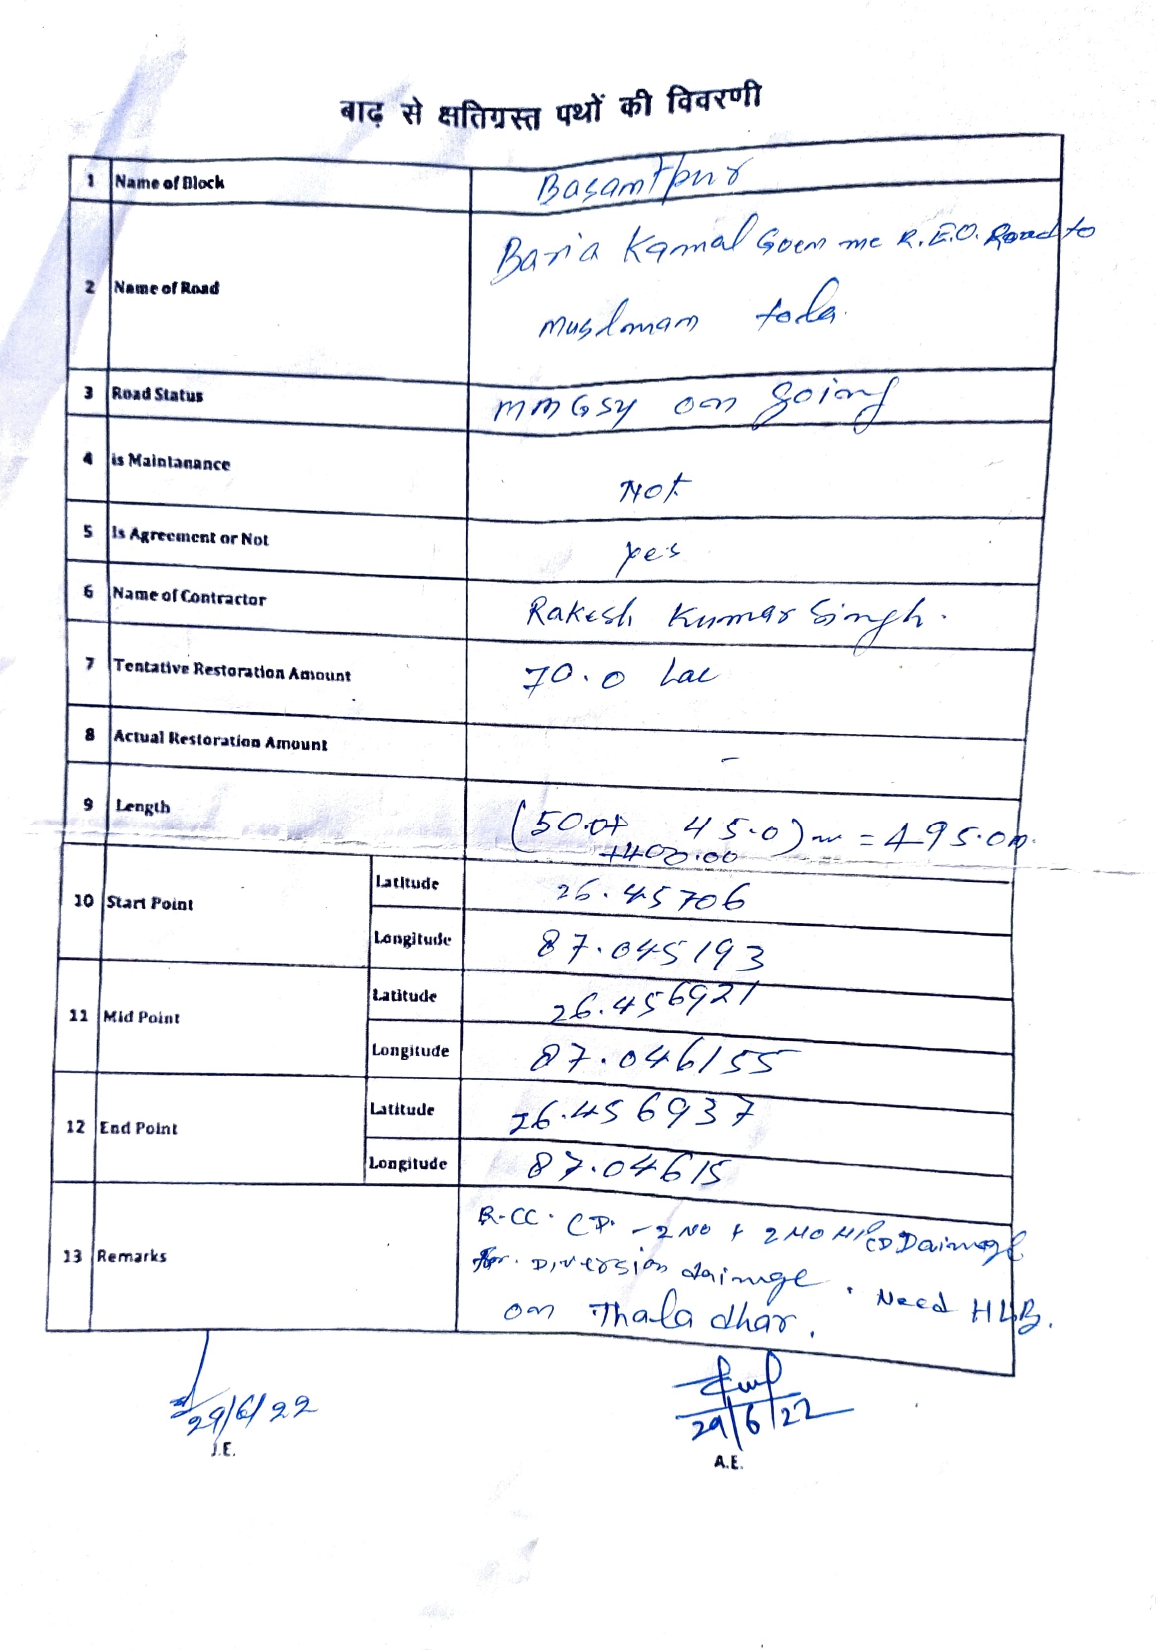 बाढ़ से क्षतिग्रस्त पथों की विवरणी
1 Name of Block Basantpur
2 Name of Road Baria Kamal Goen me R.E.O. Road to
muslmam tola.
3 Road Status MMGSY on going
4 is Maintanance Not
5 Is Agreement or Not yes
6 Name of Contractor Rakesh Kumar Singh.
7 Tentative Restoration Amount 70.0 Lac
8 Actual Restoration Amount -
9 Length (50.0+ 45.0)m = 495.0m.
+400.00
10 Start Point Latitude 26.45706
Longitude 87.045193
11 Mid Point Latitude 26.456921
Longitude 87.046155
12 End Point Latitude 26.456937
Longitude 87.04615
13 Remarks R.CC. CD. - 2 NO + 2 NO HP CD Daimage
for. Diversion daimge. Need HLB.
on Thala dhar.
29/6/22
J.E.
29/6/22
A.E.